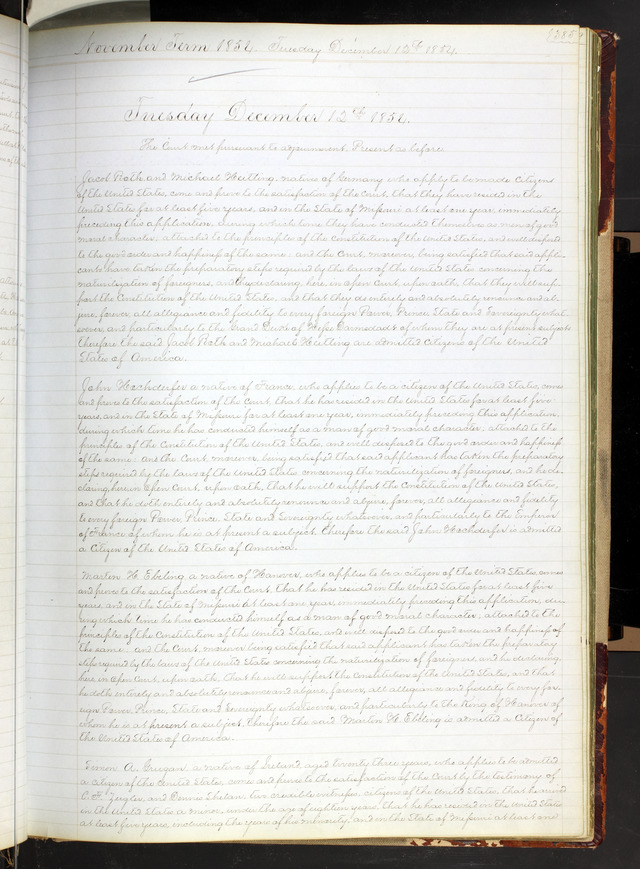 November Term 1854. Tuesday December 12th 1854.
Tuesday December 12th 1854.
The Court met pursuant to adjournment. Present as before
Jacob Roth and Michael natives of Germany who apply to be made Citizens
of the United States, come and prove to the satisfaction of the Court, that they have resided in the
United States for at least five years, and in the State of Missouri at least one year, immediately
preceding this application, during which time they have conducted themselves as men of good
moral character, attached to the principles of the Constitution of the United States, and well disposed
to the good order and happiness of the same: and the Court, moreover, being satisfied that said appli-
cants have taken the preparatory steps required by the laws of the United States concerning the
naturalization of foreigners, and they declaring here, in open Court, upon oath, that they will sup-
port the Constitution of the United States, and that they do entirely and absolutely renounce and ab-
jure, forever, all allegiance and fidelity to every foreign Power, Prince, State and Sovereignty what-
soever, and particularly to the Grand Duke of Hesse Darmstadt of whom they are at present subjects
Therefore the said Jacob Roth and Michael are admitted Citizens of the United
States of America.
John Hochderfer a native of France, who applies to be a citizen of the United States, comes
and proves to the satisfaction of the Court, that he has resided in the United States for at least five
years, and in the State of Missouri for at least one year, immediately preceding this application,
during which time he has conducted himself as a man of good moral character, attached to the
principles of the Constitution of the United States, and well disposed to the good order and happiness
of the same: and the Court, moreover, being satisfied that said applicant has taken the preparatory
steps required by the laws of the United States concerning the naturalization of foreigners, and he de-
claring here in open Court, upon oath, that he will support the Constitution of the United States,
and that he doth entirely and absolutely renounce and abjure, forever, all allegiance and fidelity
to every foreign Power, Prince, State and Sovereignty whatsoever, and particularly to the Emperor
of France of whom he is at present a subject. Therefore the said John Hochderfer is admitted
a Citizen of the United States of America.
Marten H. Ebeling a native of Hanover, who applies to be a citizen of the United States, comes
and proves to the satisfaction of the Court, that he has resided in the United States for at least five
years, and in the State of Missouri at least one year, immediately preceding this application, du-
ring which time he has conducted himself as a man of good moral character, attached to the
principles of the Constitution of the United States, and well disposed to the good order and happiness of
the same: and the Court, moreover being satisfied that said applicant has taken the preparatory
steps required by the laws of the United States concerning the naturalization of foreigners, and he declaring,
here in open Court, upon oath, that he will support the Constitution of the United States, and that
he doth entirely and absolutely renounce and abjure, forever, all allegiance and fidelity to every for-
eign Power, Prince, State and Sovereignty whatsoever, and particularly to the King of Hanover of
whom he is at present a subject. Therefore the said Marten H. Ebeling is admitted a Citizen of
the United States of America.
Simon A. a native of Ireland aged twenty three years, who applies to be admitted
a citizen of the United States, comes and proves to the satisfaction of the Court by the testimony of
C. F. and Dennis two credible witnesses, citizens of the United States, that he arrived
in the United States a minor, under the age of eighteen years: that he has resided in the United States
at least five years, including the years of his minority, and in the State of Missouri at least one